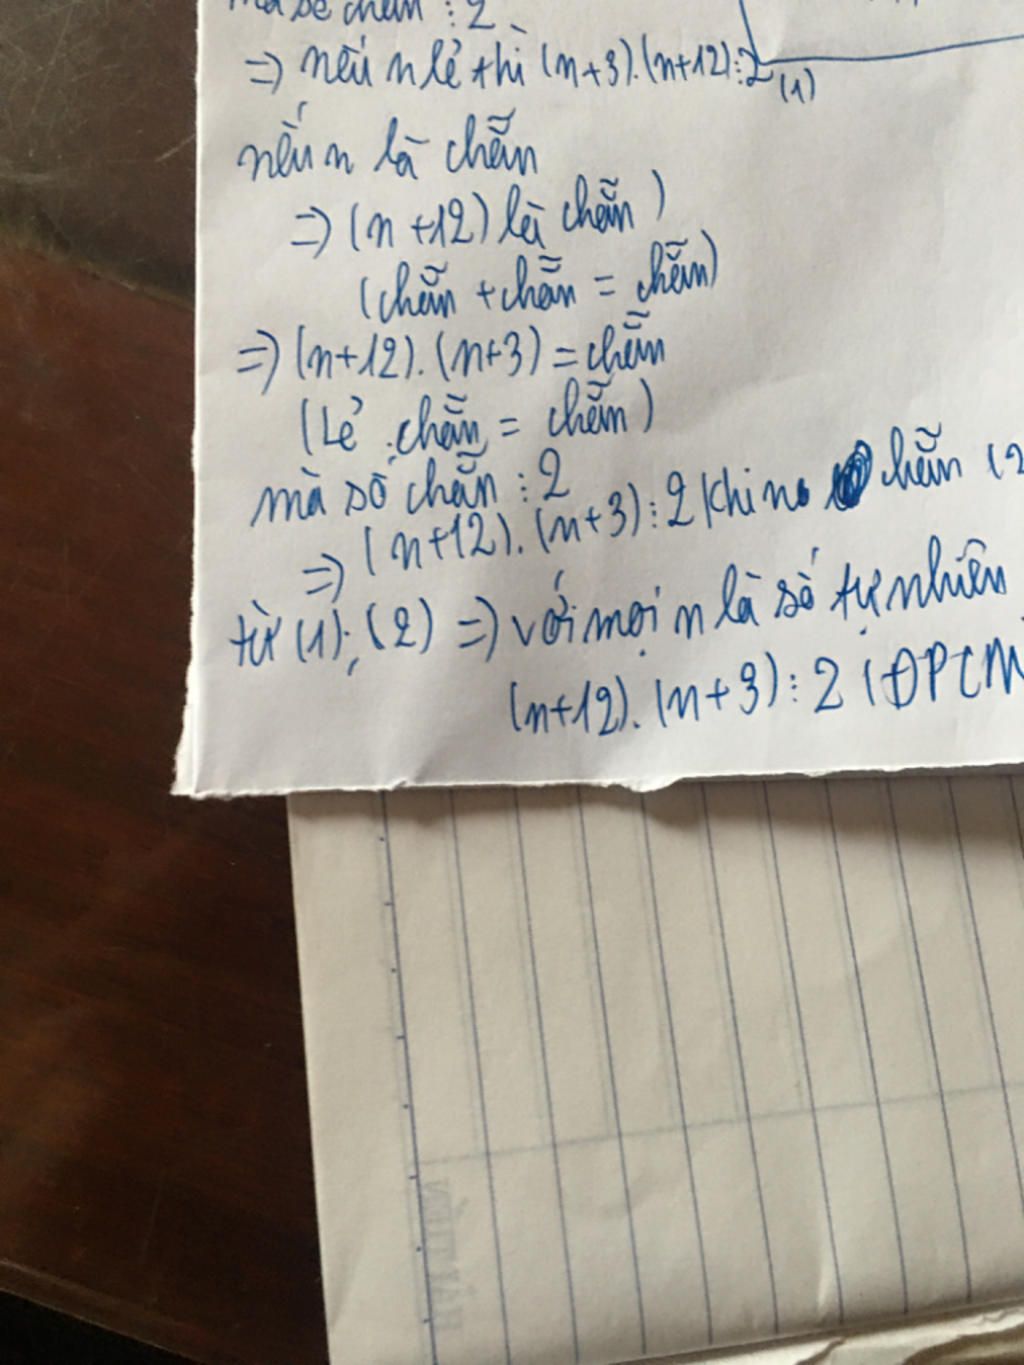 mà số chẵn ⋮ 2
=> nếu n lẻ thì (n+3).(n+12)⋮2 (1)
nếu n là chẵn
=> (n+12) là chẵn)
(chẵn + chẵn = chẵn)
=> (n+12).(n+3) = chẵn
(Lẻ . chẵn = chẵn)
mà số chẵn ⋮ 2
=> (n+12).(n+3)⋮2 khi n chẵn (2
từ (1); (2) => với mọi n là số tự nhiên
(n+12).(n+3)⋮2 (ĐPCM